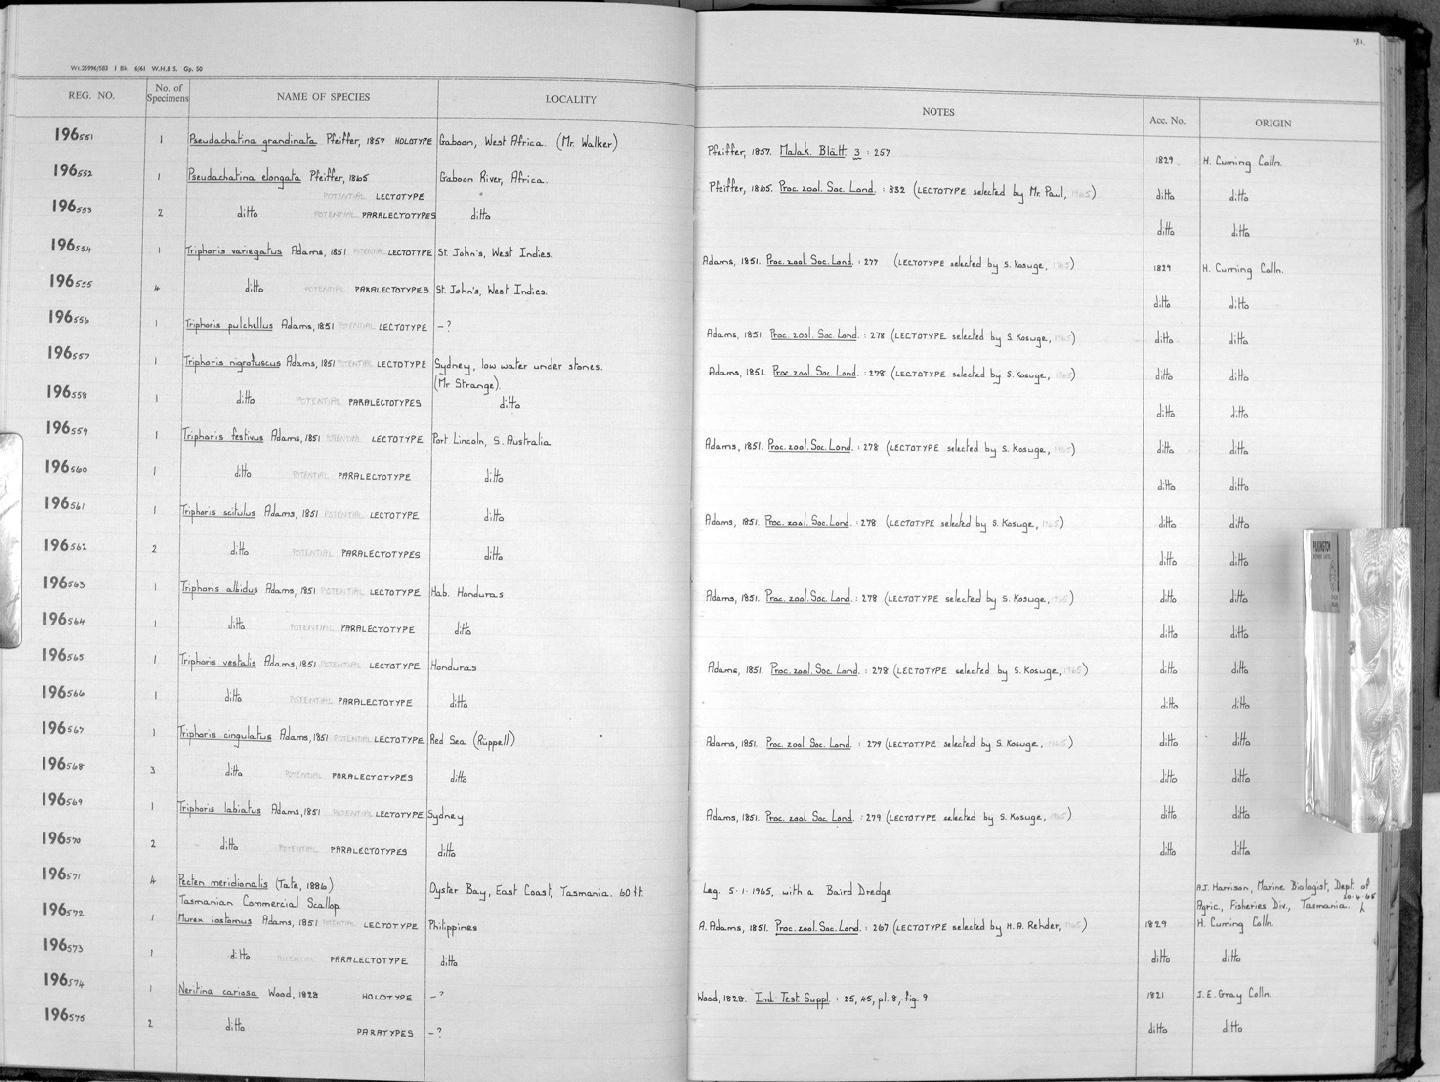 181.
Wt.25996/583 1 Bk 6/61 W.H.&S. Gp. 50
REG. NO. No. of Specimens NAME OF SPECIES LOCALITY NOTES Acc. No. ORIGIN
196551 1 Pseudachatina grandinata Pfeiffer, 1857 HOLOTYPE Gaboon, West Africa. (Mr. Walker) Pfeiffer, 1857. Malak. Blätt. 3 : 257 1829 H. Cuming Colln.
196552 1 Pseudachatina elongata Pfeiffer, 1865 Gaboon River, Africa. Pfeiffer, 1865. Proc. zool. Soc. Lond. : 332 (LECTOTYPE selected by Mr. Paul, 1965) ditto ditto
POTENTIAL LECTOTYPE
196553 2 ditto POTENTIAL PARALECTOTYPES ditto ditto ditto
196554 1 Triphoris variegatus Adams, 1851 POTENTIAL LECTOTYPE St. John's, West Indies. Adams, 1851. Proc. zool Soc. Lond. : 277 (LECTOTYPE selected by S. Kosuge, 1965) 1829 H. Cuming Colln.
196555 4 ditto POTENTIAL PARALECTOTYPES St. John's, West Indies. ditto ditto
196556 1 Triphoris pulchellus Adams, 1851 POTENTIAL LECTOTYPE –? Adams, 1851 Proc. zool. Soc. Lond. : 278 (LECTOTYPE selected by S. Kosuge, 1965) ditto ditto
196557 1 Triphoris nigrofuscus Adams, 1851 POTENTIAL LECTOTYPE Sydney, low water under stones. Adams, 1851. Proc zool Soc. Lond. : 278 (LECTOTYPE selected by S. Kosuge, 1965) ditto ditto
(Mr Strange).
196558 1 ditto POTENTIAL PARALECTOTYPES ditto ditto ditto
196559 1 Triphoris festivus Adams, 1851 POTENTIAL LECTOTYPE Port Lincoln, S. Australia Adams, 1851. Proc. zool. Soc. Lond. : 278 (LECTOTYPE selected by S. Kosuge, 1965) ditto ditto
196560 1 ditto POTENTIAL PARALECTOTYPE ditto ditto ditto
196561 1 Triphoris scitulus Adams, 1851 POTENTIAL LECTOTYPE ditto Adams, 1851. Proc. zool. Soc. Lond. : 278 (LECTOTYPE selected by S. Kosuge, 1965) ditto ditto
196562 2 ditto POTENTIAL PARALECTOTYPES ditto ditto ditto
196563 1 Triphoris albidus Adams, 1851 POTENTIAL LECTOTYPE Hab. Honduras Adams, 1851. Proc. zool. Soc. Lond. : 278 (LECTOTYPE selected by S. Kosuge, 1965) ditto ditto
196564 1 ditto POTENTIAL PARALECTOTYPE ditto ditto ditto
196565 1 Triphoris vestalis Adams, 1851 POTENTIAL LECTOTYPE Honduras Adams, 1851. Proc. zool. Soc. Lond. : 278 (LECTOTYPE selected by S. Kosuge, 1965) ditto ditto
196566 1 ditto POTENTIAL PARALECTOTYPE ditto ditto ditto
196567 1 Triphoris cingulatus Adams, 1851 POTENTIAL LECTOTYPE Red Sea (Rüppell) Adams, 1851. Proc. zool Soc. Lond. : 279 (LECTOTYPE selected by S. Kosuge, 1965) ditto ditto
196568 3 ditto POTENTIAL PARALECTOTYPES ditto ditto ditto
196569 1 Triphoris labiatus Adams, 1851 POTENTIAL LECTOTYPE Sydney Adams, 1851. Proc. zool Soc. Lond. : 279 (LECTOTYPE selected by S. Kosuge, 1965) ditto ditto
196570 2 ditto POTENTIAL PARALECTOTYPES ditto ditto ditto
196571 4 Pecten meridionalis (Tate, 1886) Oyster Bay, East Coast, Tasmania. 60 ft Leg. 5.1.1965, with a Baird Dredge A.J. Harrison, Marine Biologist, Dept. of
Tasmanian Commercial Scallop Agric., Fisheries Div., Tasmania. 20.4.65
196572 1 Murex iostomus Adams, 1851 POTENTIAL LECTOTYPE Philippines A. Adams, 1851. Proc. zool. Soc. Lond. : 267 (LECTOTYPE selected by H.A. Rehder, 1965) 1829 H. Cuming Colln.
196573 1 ditto POTENTIAL PARALECTOTYPE ditto ditto ditto
196574 1 Neritina cariosa Wood, 1828 HOLOTYPE –? Wood, 1828. Ind. Test Suppl. : 25, 45, pl. 8, fig. 9 1821 J. E. Gray Colln.
196575 2 ditto PARATYPES –? ditto ditto
PILKINGTON